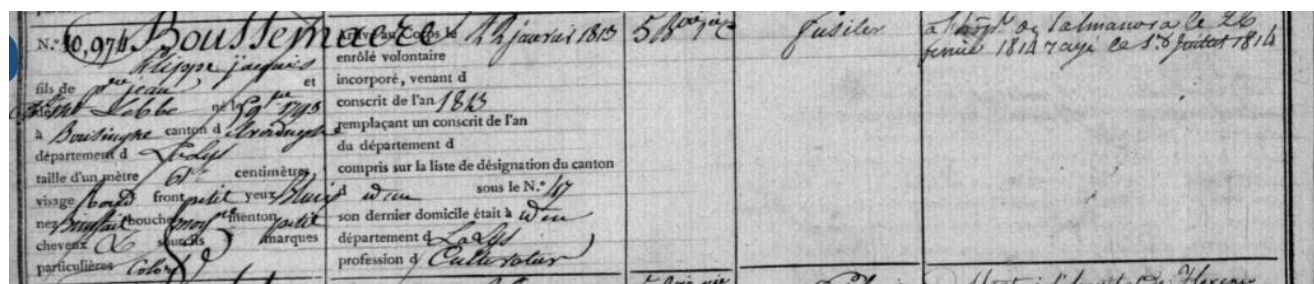 N.º 10,974 Boussemaere
philippe jacques
fils de jean et
Labbe né le 9bre 1793
à Boesinghe canton d
département d La Lys
taille d'un mètre 61 centimètres
visage rond front petit yeux bleus
nez bouche moyne menton petit
cheveux sourcils marques
particulières Coloré
Arrivé au Corps le 22 janvier 1813
enrôlé volontaire
incorporé, venant d
conscrit de l'an 1813
remplaçant un conscrit de l'an
du département d
compris sur la liste de désignation du canton
d idem sous le N.º 47
son dernier domicile était à idem
département d La Lys
profession d Cultivateur
5 Bon
fusilier
a le 26
fevrier 1814 rayé le juillet 1814